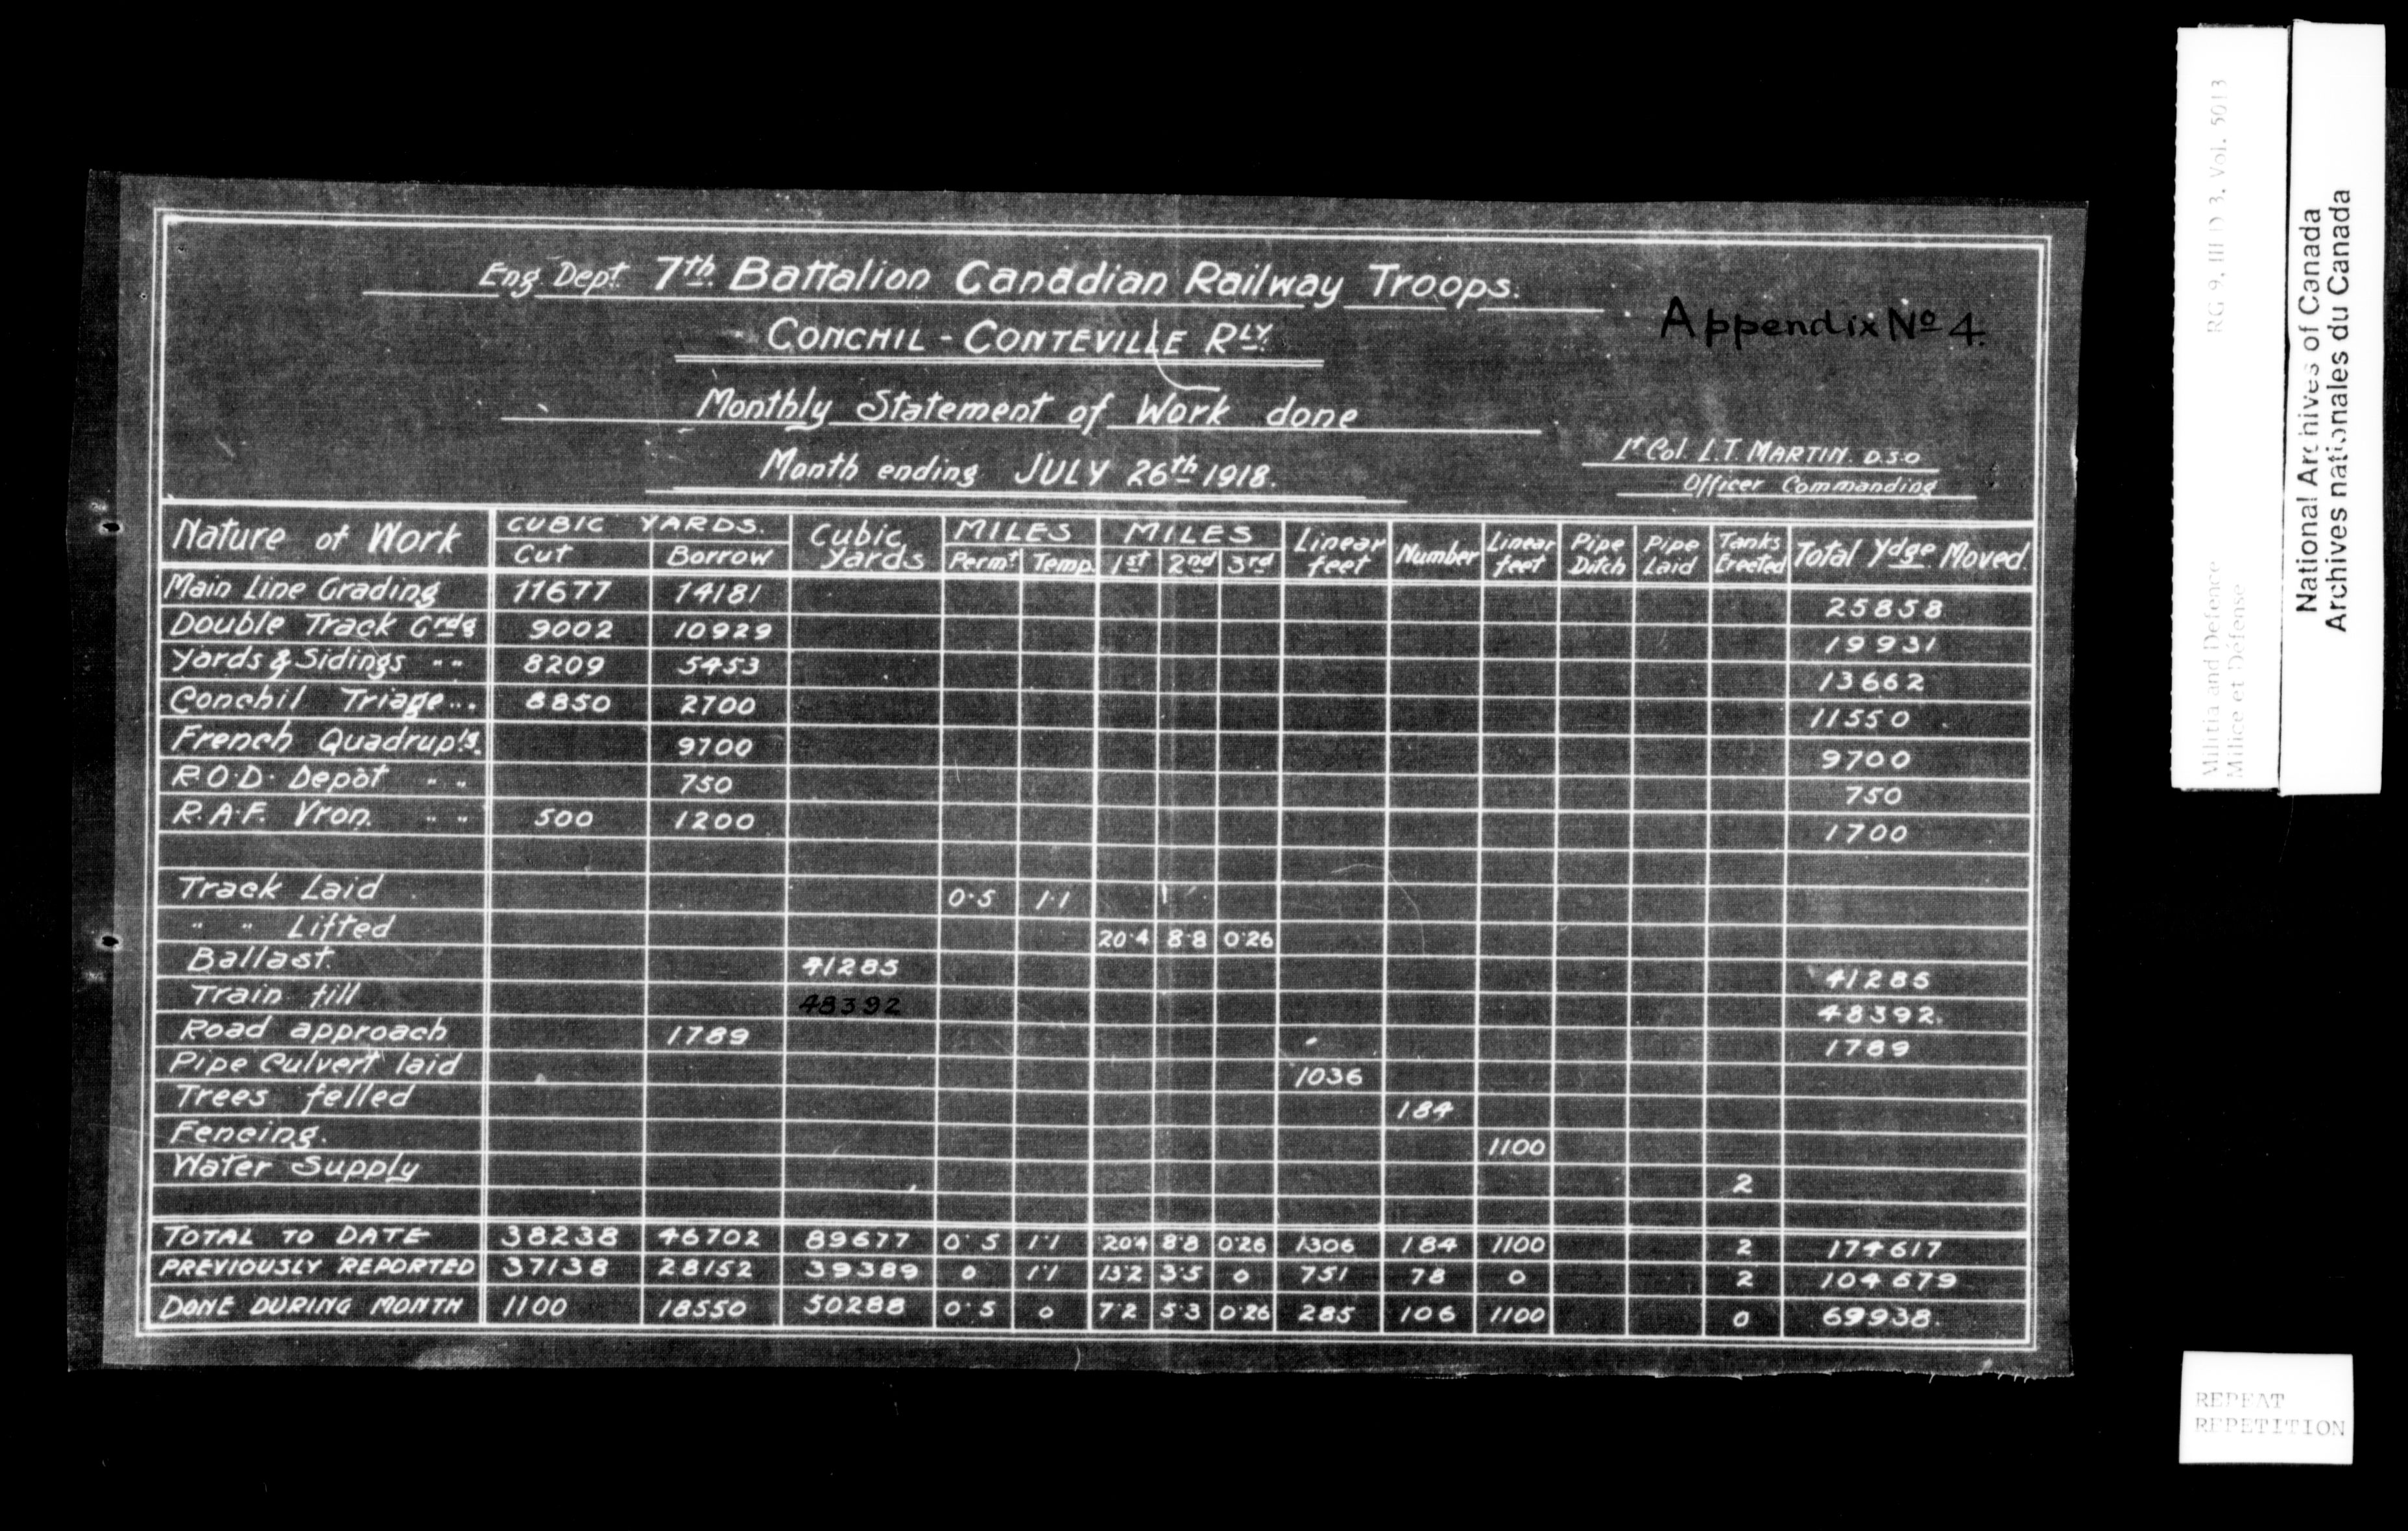 Eng. Dept. 7th Battalion Canadian Railway Troops.
CONCHIL - CONTEVILLE RLY.
Appendix No 4.
Monthly Statement of Work done
Month ending JULY 26th 1918.
Lt Col. L.T. MARTIN. D.S.O
Officer Commanding
Nature of Work | CUBIC YARDS. Cut | Borrow | Cubic Yards | MILES Permt | Temp. | MILES 1st | 2nd | 3rd | Linear feet | Number | Linear feet | Pipe Ditch | Pipe Laid | Tanks Erected | Total Ydge. Moved.
Main Line Grading 11677 14181 25858
Double Track Grdg 9002 10929 19931
Yards & Sidings " " 8209 5453 13662
Conchil Triage " " 8850 2700 11550
French Quadrupls. 9700 9700
R.O.D. Depôt " " 750 750
R.A.F. Vron. " " 500 1200 1700
Track Laid 0.5 1.1
" " Lifted 20.4 8.8 0.26
Ballast. 41285 41285
Train fill 48392 48392.
Road approach 1789 1789
Pipe Culvert laid 1036
Trees felled 184
Fencing. 1100
Water Supply 2
TOTAL TO DATE 38238 46702 89677 0.5 1.1 20.4 8.8 0.26 1306 184 1100 2 174617
PREVIOUSLY REPORTED 37138 28152 39389 0 1.1 13.2 3.5 0 751 78 0 2 104679
DONE DURING MONTH 1100 18550 50288 0.5 0 7.2 5.3 0.26 285 106 1100 0 69938.
RG 9, III D 3, Vol. 5013
Militia and Defence
Milice et Défense
National Archives of Canada
Archives nationales du Canada
REPEAT
REPETITION